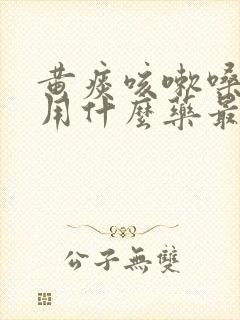 黄痰咳嗽嗓
用什麽藥最
公子無雙